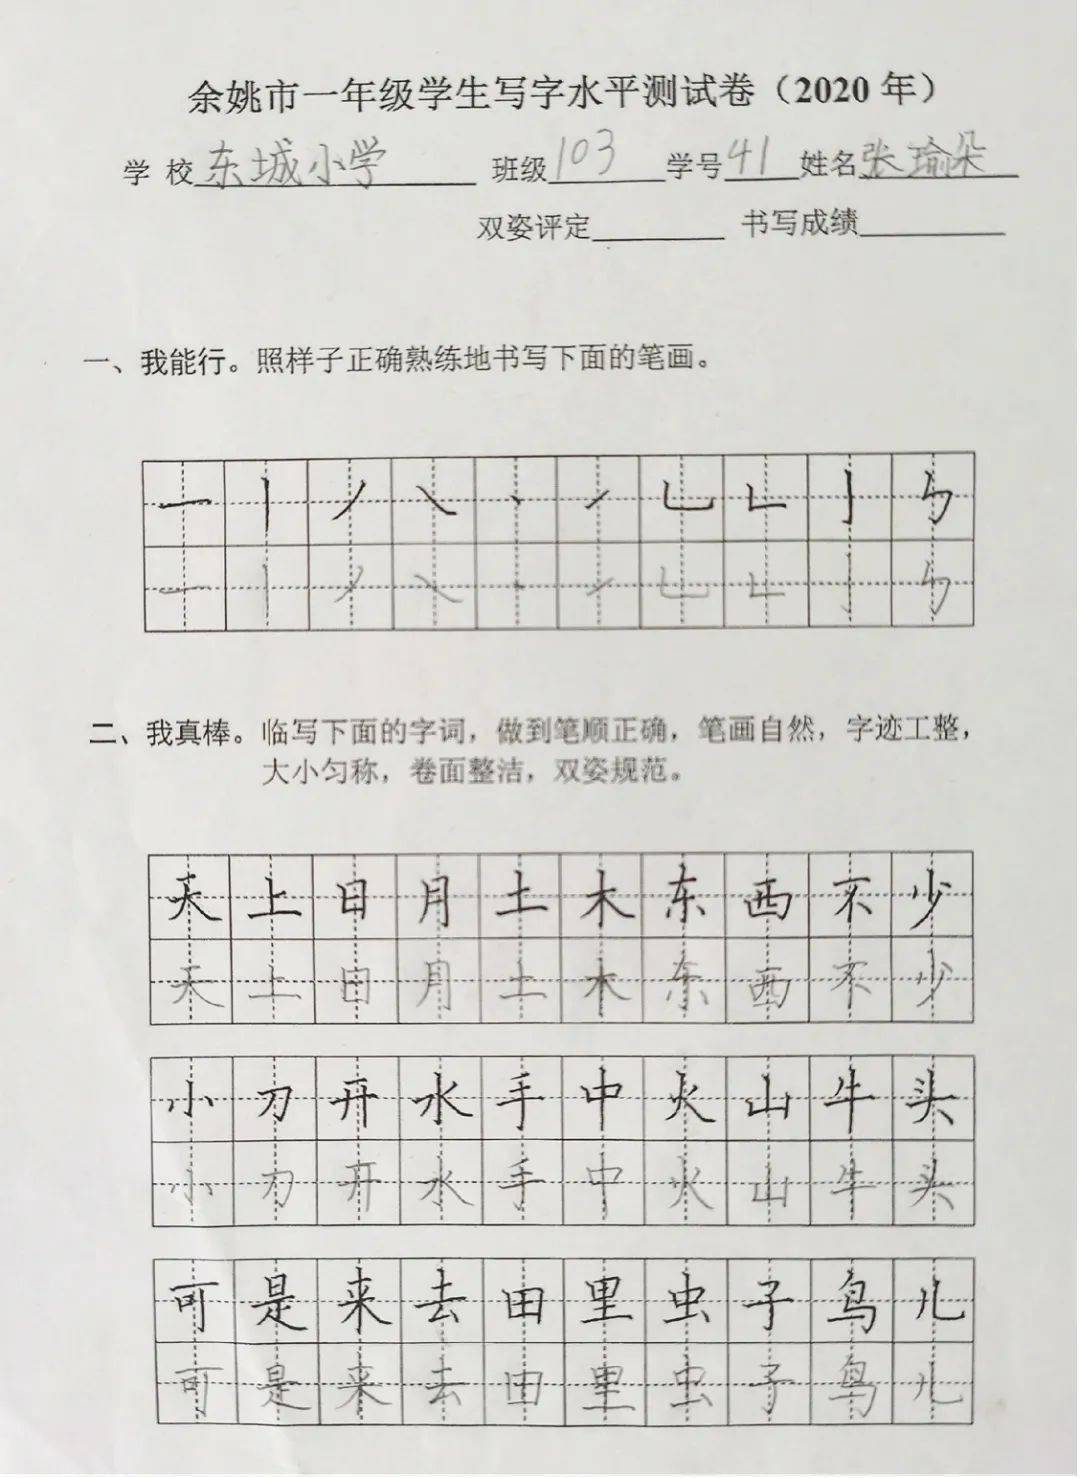 余姚市一年级学生写字水平测试卷（2020 年）
学 校 东城小学 班级 103 学号 41 姓名 张瑜朵
双姿评定 书写成绩
一、我能行。照样子正确熟练地书写下面的笔画。
一 丨 丿 ㇏ 丶 ㇀ 乚 𠃊 亅 ㄣ
一 丨 丿 ㇏ 丶 ㇀ 乚 𠃊 亅 ㄣ
二、我真棒。临写下面的字词，做到笔顺正确，笔画自然，字迹工整，
大小匀称，卷面整洁，双姿规范。
天 上 日 月 土 木 东 西 不 少
天 上 日 月 土 木 东 西 不 少
小 刀 开 水 手 中 火 山 牛 头
小 刀 开 水 手 中 火 山 牛 头
可 是 来 去 田 里 虫 子 鸟 儿
可 是 来 去 田 里 虫 子 鸟 儿